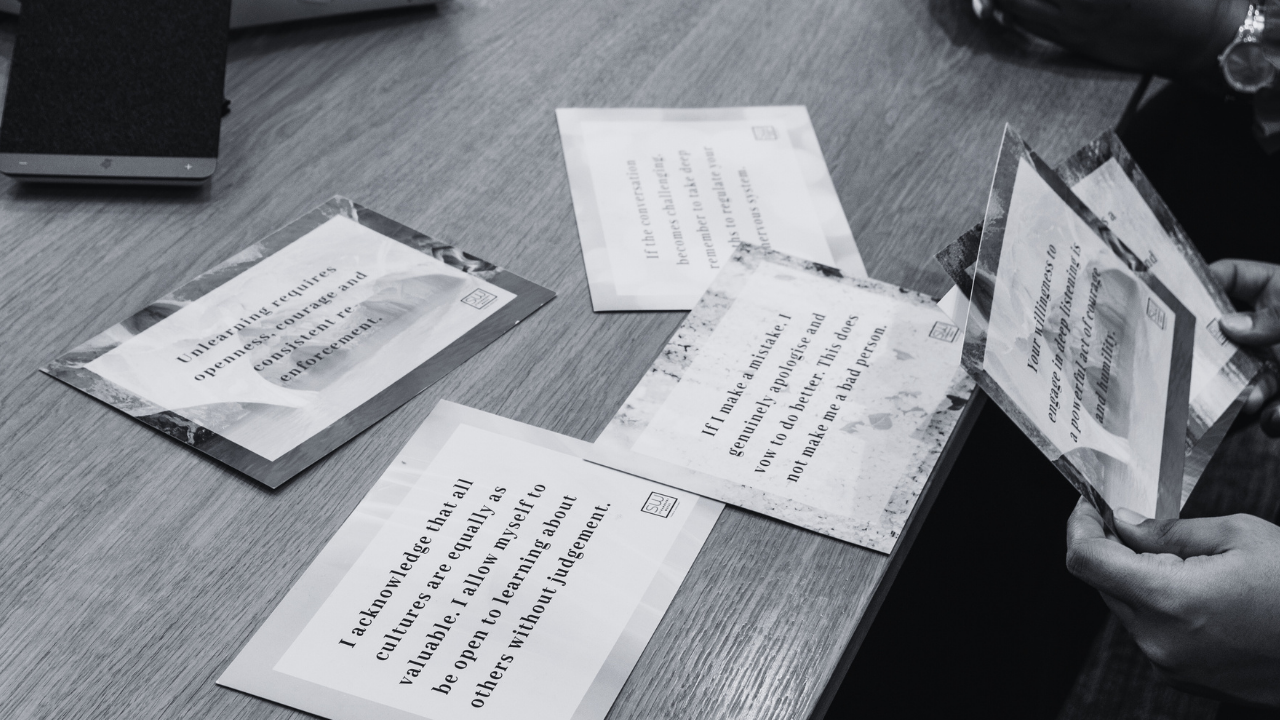 Unlearning requires
openness, courage and
consistent re -
enforcement.
If the conversation
becomes challenging,
remember to take deep
ths to regulate your
nervous system.
If I make a mistake, I
genuinely apologise and
vow to do better. This does
not make me a bad person.
I acknowledge that all
cultures are equally as
valuable. I allow myself to
be open to learning about
others without judgement.
Your willingness to
engage in deep listening is
a powerful act of courage
and humility.
SW